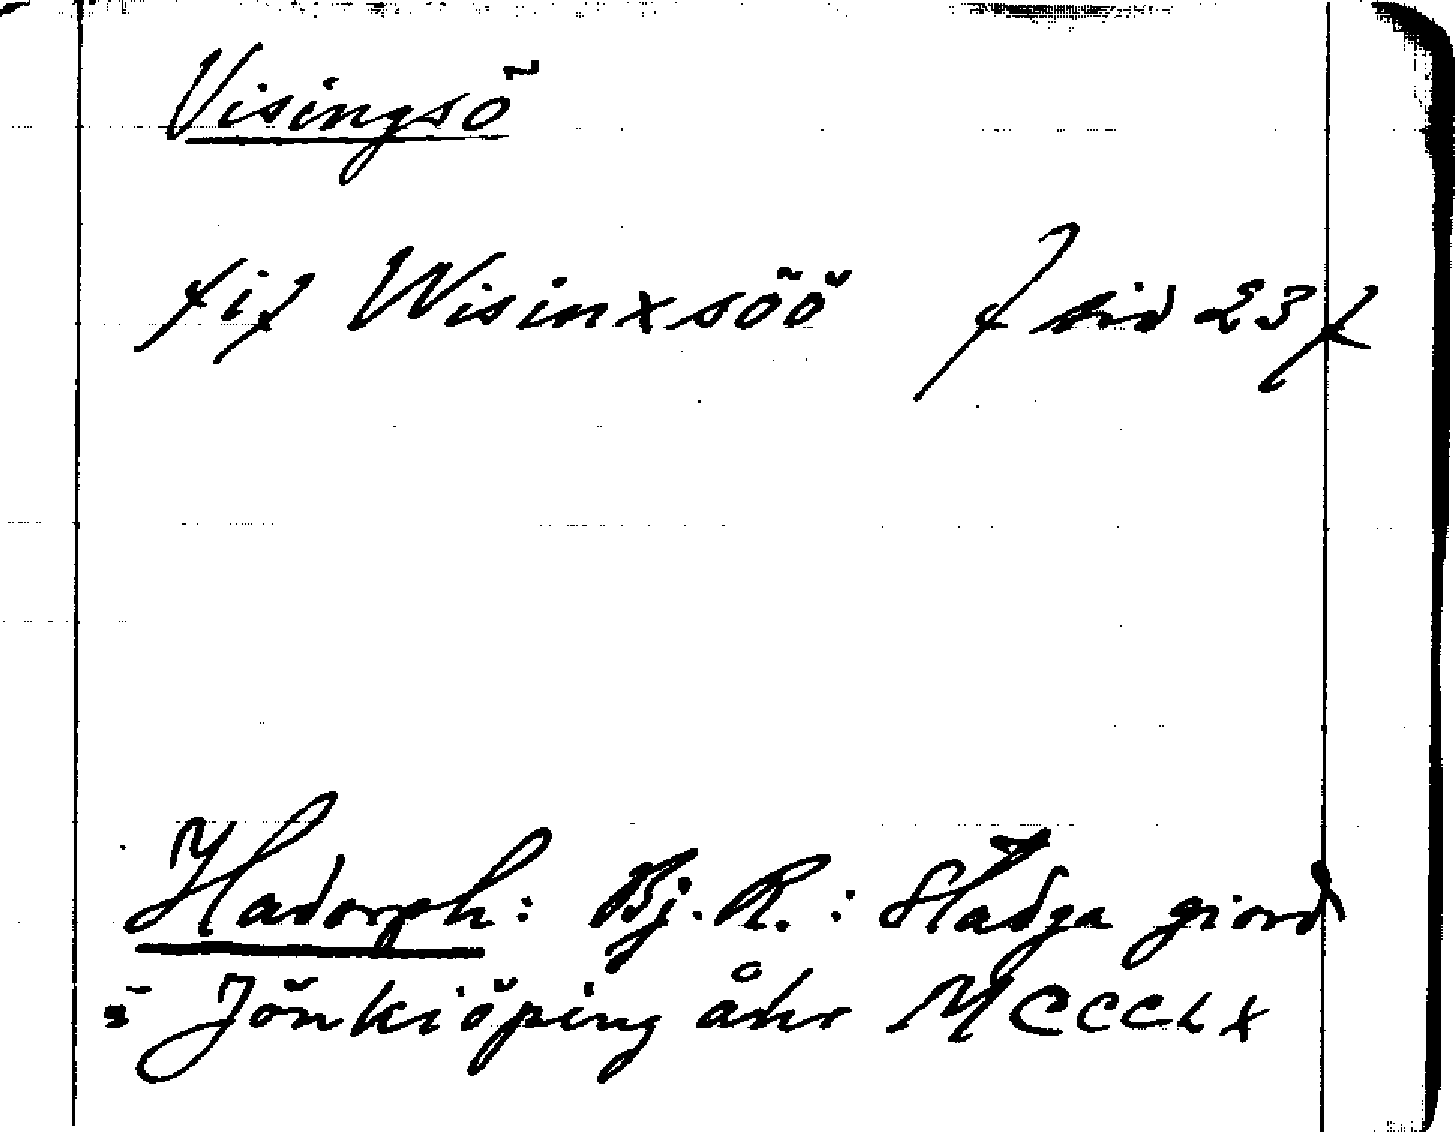 Visingsö
/i/ Wisinxsöö / sid 23/
Hadorph: Bj. R.: Stadga giord
i Jönkiöping åhr MCCCLX